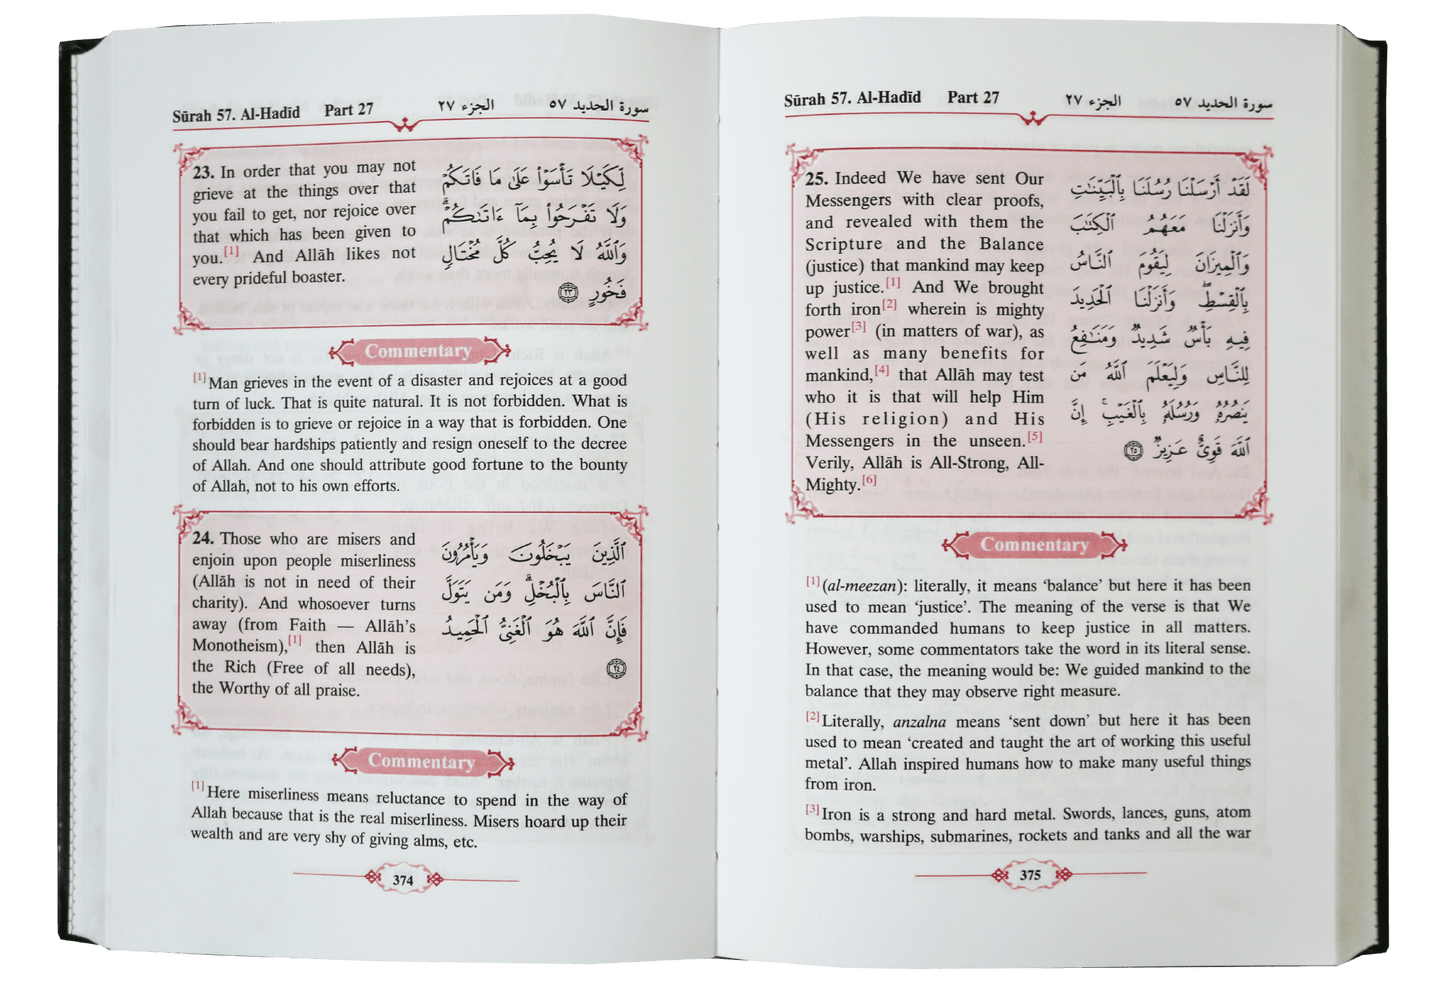 Sūrah 57. Al-Hadīd Part 27 الجزء ٢٧ سورة الحديد ٥٧
23. In order that you may not
grieve at the things over that
you fail to get, nor rejoice over
that which has been given to
you.[1] And Allāh likes not
every prideful boaster.
لِّكَيْلَا تَأْسَوْا۟ عَلَىٰ مَا فَاتَكُمْ
وَلَا تَفْرَحُوا۟ بِمَآ ءَاتَىٰكُمْ ۗ
وَٱللَّهُ لَا يُحِبُّ كُلَّ مُخْتَالٍ
فَخُورٍ ٢٣
Commentary
[1]Man grieves in the event of a disaster and rejoices at a good
turn of luck. That is quite natural. It is not forbidden. What is
forbidden is to grieve or rejoice in a way that is forbidden. One
should bear hardships patiently and resign oneself to the decree
of Allah. And one should attribute good fortune to the bounty
of Allah, not to his own efforts.
24. Those who are misers and
enjoin upon people miserliness
(Allāh is not in need of their
charity). And whosoever turns
away (from Faith — Allāh's
Monotheism),[1] then Allāh is
the Rich (Free of all needs),
the Worthy of all praise.
ٱلَّذِينَ يَبْخَلُونَ وَيَأْمُرُونَ
ٱلنَّاسَ بِٱلْبُخْلِ ۗ وَمَن يَتَوَلَّ
فَإِنَّ ٱللَّهَ هُوَ ٱلْغَنِىُّ ٱلْحَمِيدُ
٢٤
Commentary
[1]Here miserliness means reluctance to spend in the way of
Allah because that is the real miserliness. Misers hoard up their
wealth and are very shy of giving alms, etc.
374
Sūrah 57. Al-Hadīd Part 27 الجزء ٢٧ سورة الحديد ٥٧
25. Indeed We have sent Our
Messengers with clear proofs,
and revealed with them the
Scripture and the Balance
(justice) that mankind may keep
up justice.[1] And We brought
forth iron[2] wherein is mighty
power[3] (in matters of war), as
well as many benefits for
mankind,[4] that Allāh may test
who it is that will help Him
(His religion) and His
Messengers in the unseen.[5]
Verily, Allāh is All-Strong, All-
Mighty.[6]
لَقَدْ أَرْسَلْنَا رُسُلَنَا بِٱلْبَيِّنَـٰتِ
وَأَنزَلْنَا مَعَهُمُ ٱلْكِتَـٰبَ
وَٱلْمِيزَانَ لِيَقُومَ ٱلنَّاسُ
بِٱلْقِسْطِ ۖ وَأَنزَلْنَا ٱلْحَدِيدَ
فِيهِ بَأْسٌ شَدِيدٌ وَمَنَـٰفِعُ
لِلنَّاسِ وَلِيَعْلَمَ ٱللَّهُ مَن
يَنصُرُهُۥ وَرُسُلَهُۥ بِٱلْغَيْبِ ۚ إِنَّ
ٱللَّهَ قَوِىٌّ عَزِيزٌ ٢٥
Commentary
[1](al-meezan): literally, it means 'balance' but here it has been
used to mean 'justice'. The meaning of the verse is that We
have commanded humans to keep justice in all matters.
However, some commentators take the word in its literal sense.
In that case, the meaning would be: We guided mankind to the
balance that they may observe right measure.
[2]Literally, anzalna means 'sent down' but here it has been
used to mean 'created and taught the art of working this useful
metal'. Allah inspired humans how to make many useful things
from iron.
[3]Iron is a strong and hard metal. Swords, lances, guns, atom
bombs, warships, submarines, rockets and tanks and all the war
375